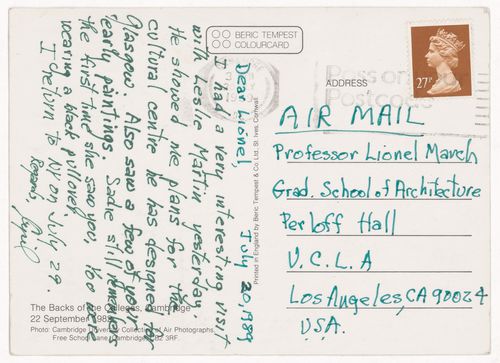 BERIC TEMPEST
COLOURCARD
July 20, 1989
Dear Lionel,
I had a very interesting visit
with Leslie Martin yesterday.
He showed me plans for the
cultural centre he has designed for
Glasgow. Also saw a few of your
early paintings. Sadie still remembers
the first time she saw you. You were
wearing a black pullover.
I return to NY on July 29.
Regards,
The Backs of the Colleges, Cambridge
22 September 198
Photo: Cambridge University Collection of Air Photographs,
Free School Lane, Cambridge CB2 3RF.
Printed in England by Beric Tempest & Co. Ltd. St. Ives, Cornwall
27P
Postcode
ADDRESS
AIR MAIL
Professor Lionel March
Grad. School of Architecture
Perloff Hall
U.C.L.A
Los Angeles, CA 90024
USA.